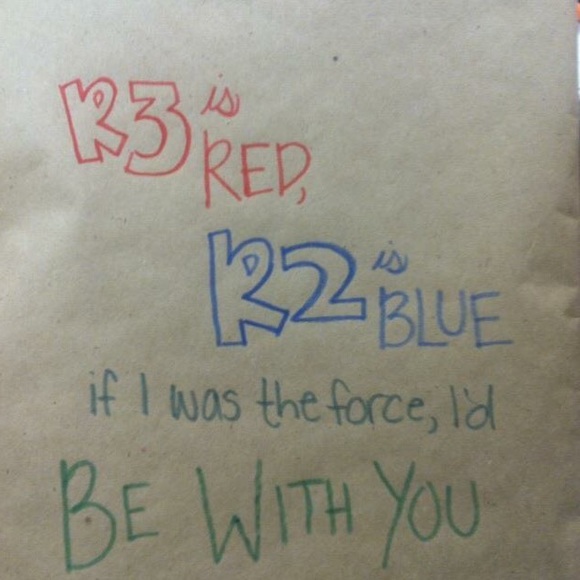 R3 is
RED,
R2 is
BLUE
if I was the force, I'd
BE WITH YOU